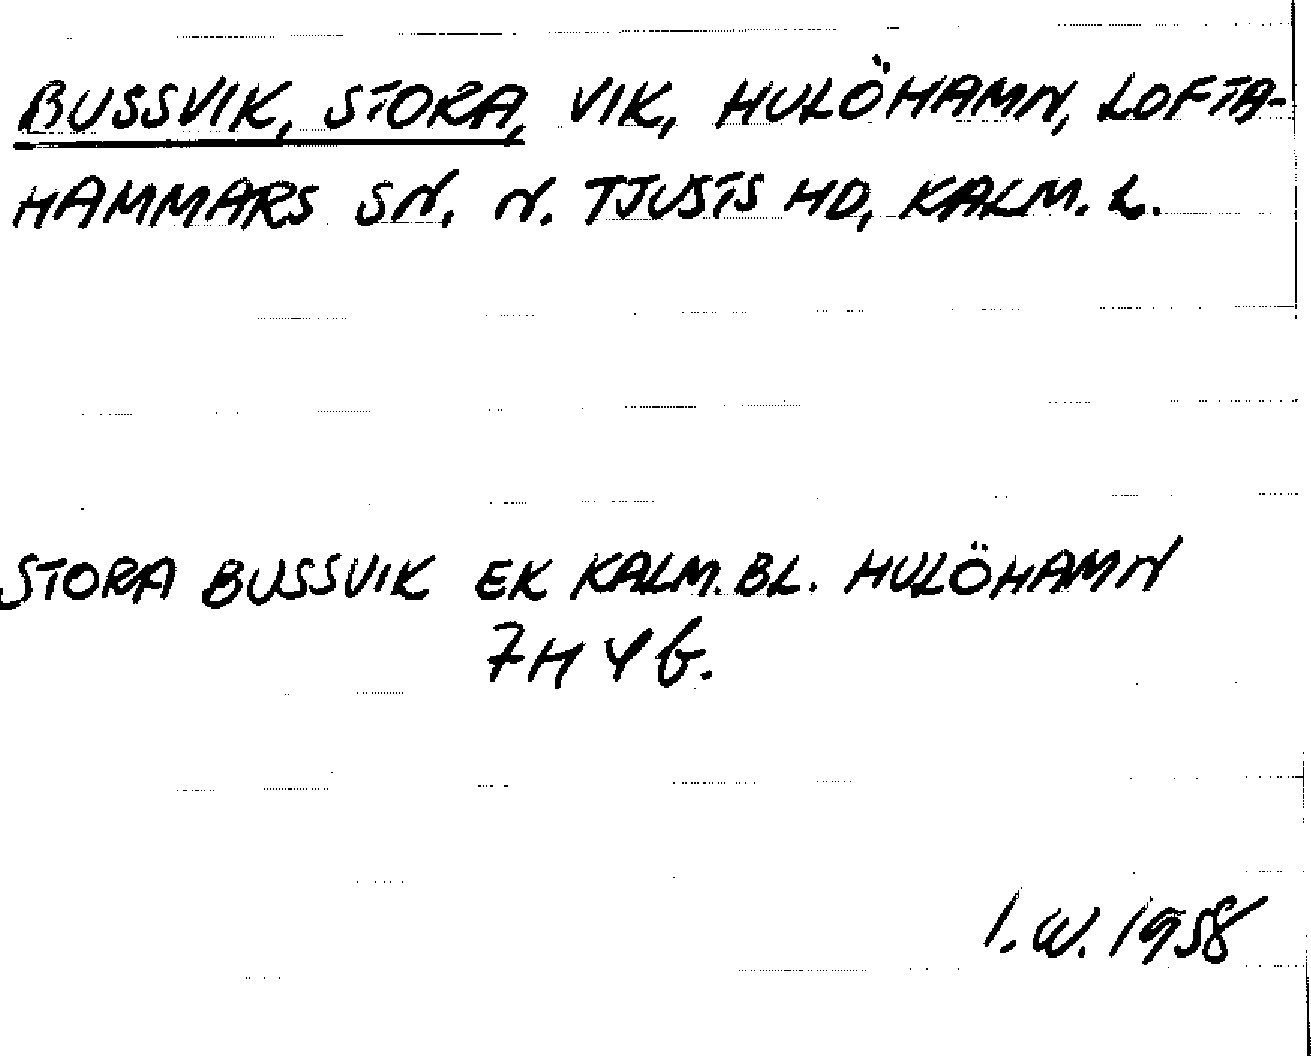 BUSSVIK, STORA, VIK, HULÖHAMN, LOFTA-
HAMMARS SN. N. TJUSTS HD, KALM. L.
STORA BUSSVIK EK KALM. BL. HULÖHAMN
7H 4 b.
I. W. 1958